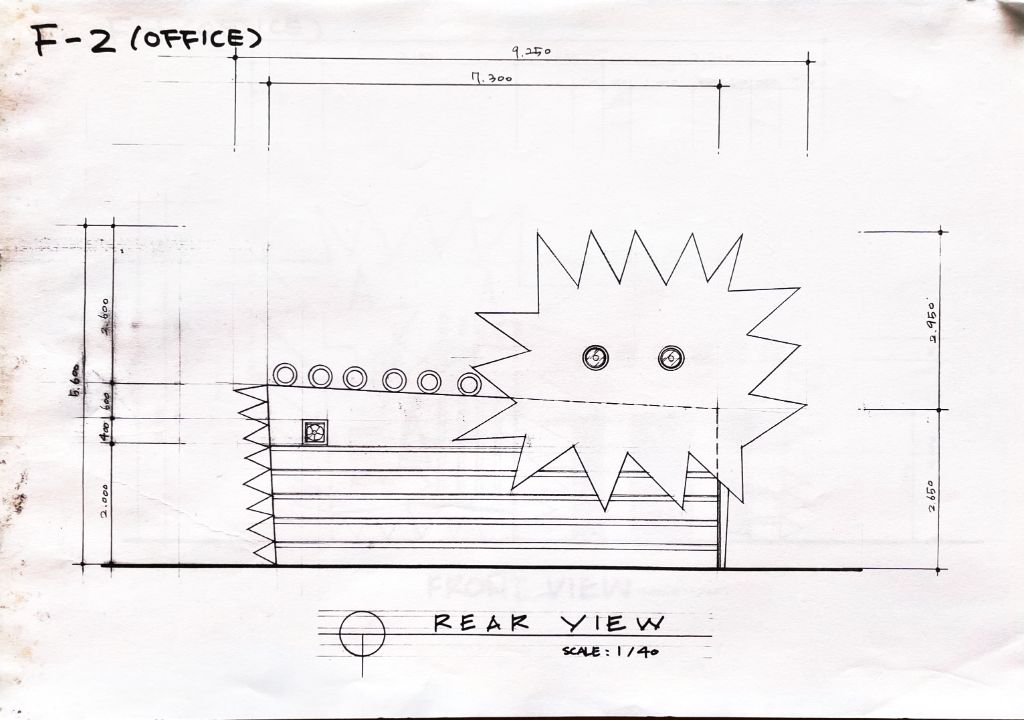 F-2 (OFFICE)
9.250
7.300
2.600
5.600
600
400
2.000
2.950
2.650
FRONT VIEW
REAR VIEW
SCALE: 1/40